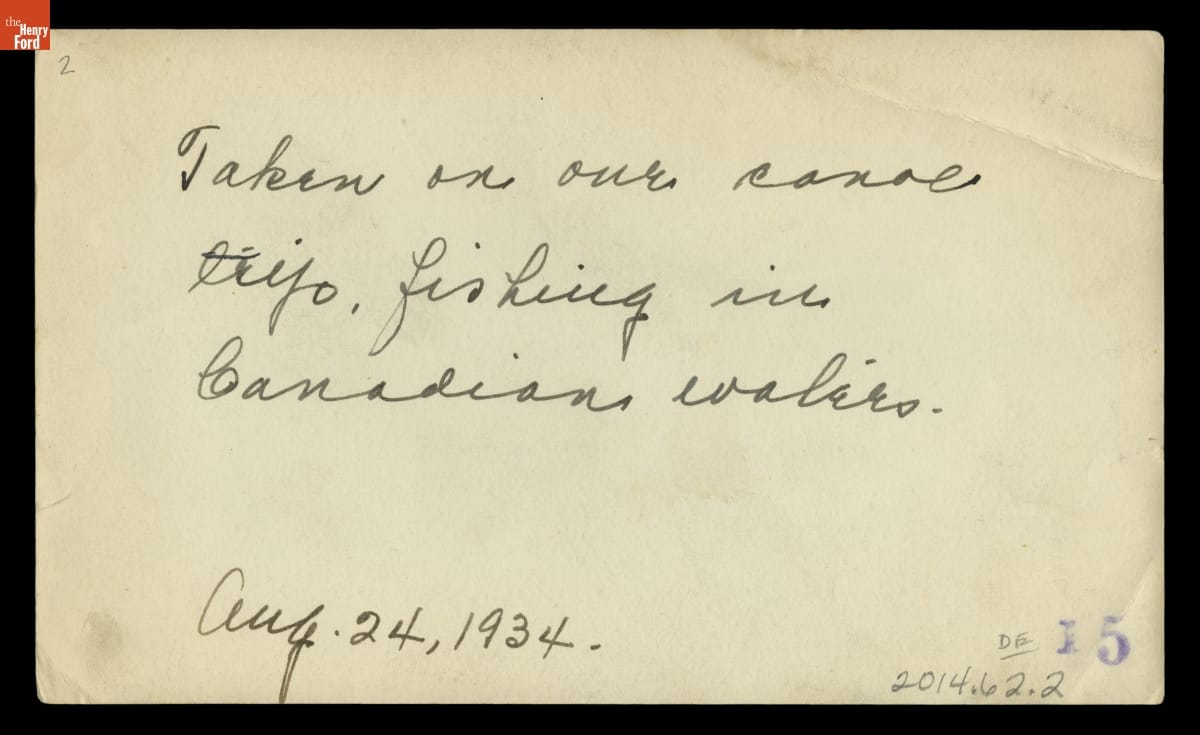 the
Henry
Ford
2
Taken on our canoe
trip, fishing in
Canadian waters.
Aug. 24, 1934.
DE
5
2014.62.2